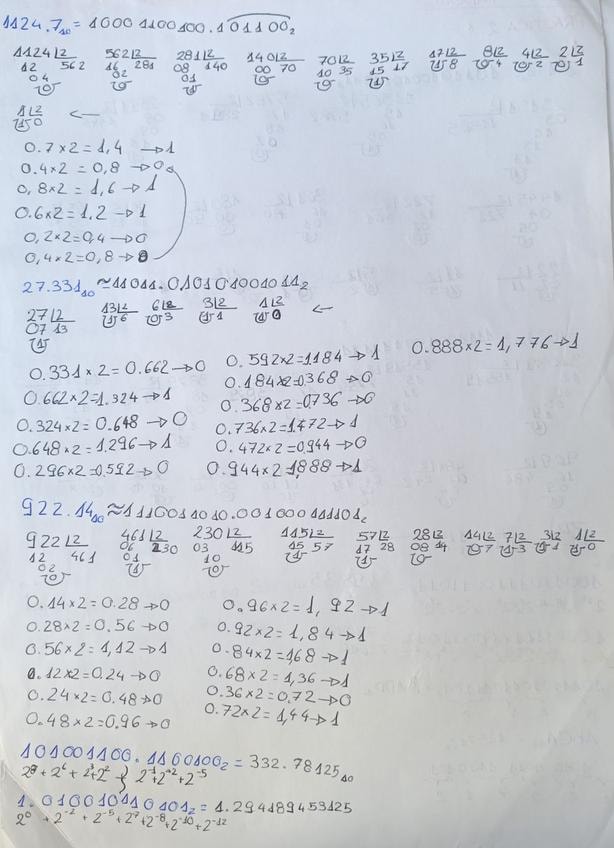 1124.7₁₀ = 10001100100.101100₂
1124|2 562|2 281|2 140|2 70|2 35|2 17|2 8|2 4|2 2|2
12 562 16 281 08 140 00 70 10 35 15 17 1 8 0 4 0 2 0 1
04 02 01 0 0 1
0 0 1
1|2 ←
1 0
0.7×2=1,4 →1
0.4×2=0,8 →0
0,8×2=1,6→1
0.6×2=1,2→1
0,2×2=0,4→0
0,4×2=0,8→0
27.331₁₀≈11011.01010100101 1₂
27|2 13|2 6|2 3|2 1|2 ←
07 13 1 6 0 3 1 1 1 0
1
0.331×2=0.662→0 0.592×2=1.184→1 0.888×2=1,776→1
0.662×2=1.324→1 0.184×2=0.368→0
0.324×2=0.648→0 0.368×2=0.736→0
0.648×2=1.296→1 0.736×2=1.472→1
0.296×2=0.592→0 0.472×2=0.944→0
0.944×2=1,888→1
922.14₁₀≈1110011010.001000111101₂
922|2 461|2 230|2 115|2 57|2 28|2 14|2 7|2 3|2 1|2
12 461 06 230 03 115 15 57 17 28 08 14 0 7 1 3 1 1 1 0
02 01 10 1 1 0
0 1 0
0.14×2=0.28→0 0.96×2=1,92→1
0.28×2=0.56→0 0.92×2=1,84→1
0.56×2=1,12→1 0.84×2=1,68→1
0.12×2=0.24→0 0.68×2=1,36→1
0.24×2=0.48→0 0.36×2=0.72→0
0.48×2=0.96→0 0.72×2=1,44→1
101001100.1100100₂=332.78125₁₀
2⁸+2⁶+2³+2² 2⁻¹+2⁻²+2⁻⁵
1.010010110101₂=1.294189453125
2⁰+2⁻²+2⁻⁵+2⁻⁷+2⁻⁸+2⁻¹⁰+2⁻¹²